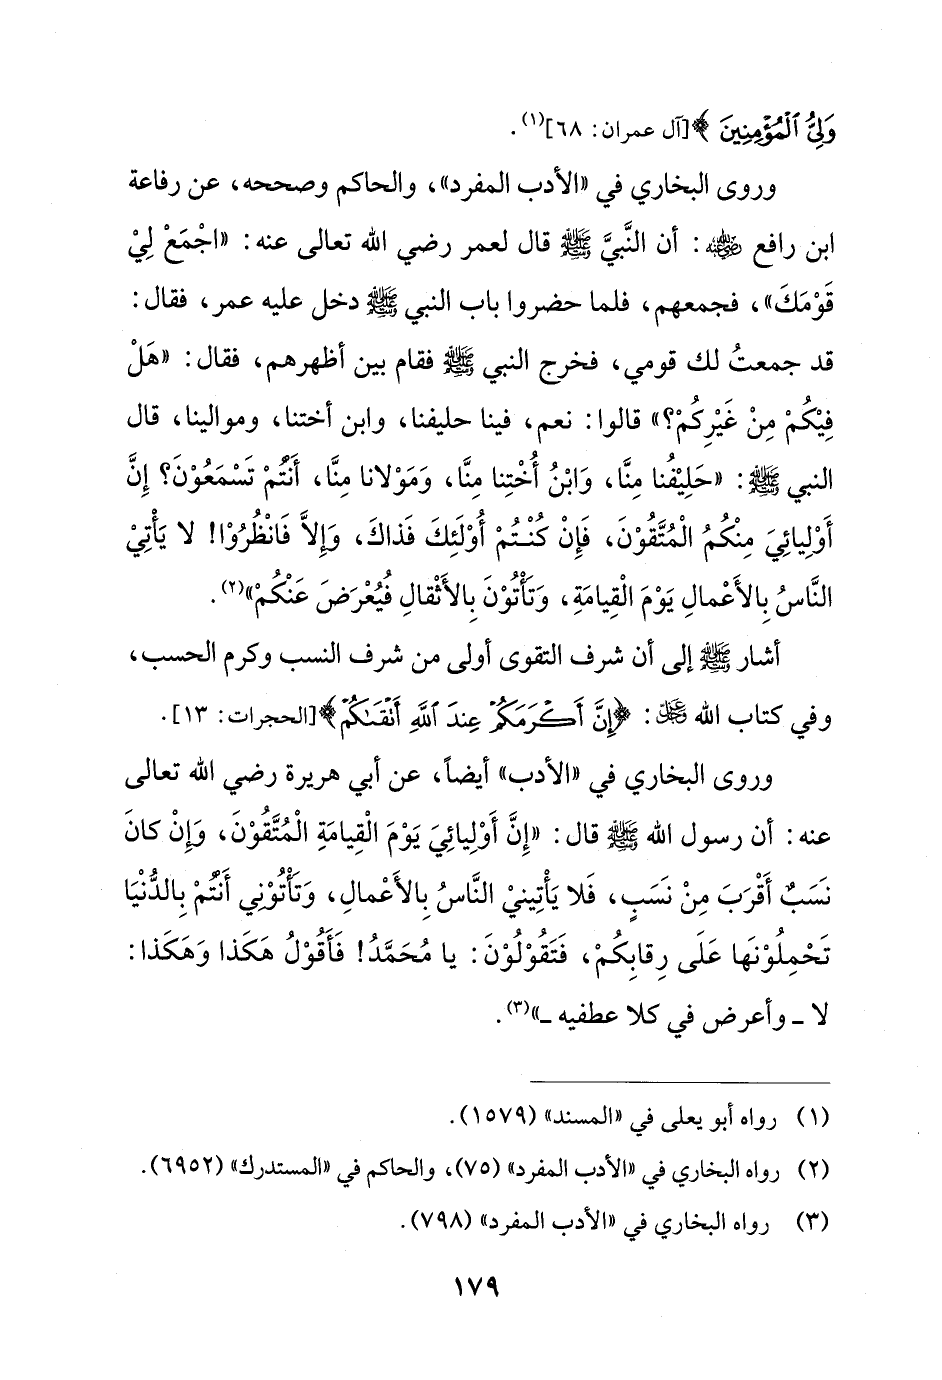 وَلِيُّ ٱلْمُؤْمِنِينَ ﴾[آل عمران: ٦٨](١).
وروى البخاري في «الأدب المفرد»، والحاكم وصححه، عن رفاعة
ابن رافع ﵁: أن النَّبيَّ ﷺ قال لعمر رضي الله تعالى عنه: «اجْمَعْ لِيْ
قَوْمَكَ»، فجمعهم، فلما حضروا باب النبي ﷺ دخل عليه عمر، فقال:
قد جمعتُ لك قومي، فخرج النبي ﷺ فقام بين أظهرهم، فقال: «هَلْ
فِيْكُمْ مِنْ غَيْرِكُمْ؟» قالوا: نعم، فينا حليفنا، وابن أختنا، وموالينا، قال
النبي ﷺ: «حَلِيْفُنا مِنَّا، وَابْنُ أُخْتِنا مِنَّا، وَمَوْلانا مِنَّا، أَنتُمْ تَسْمَعُوْنَ؟ إِنَّ
أَوْلِيائِيَ مِنْكُمُ الْمُتَّقُوْنَ، فَإِنْ كُنْتُمْ أُوْلَئِكَ فَذاكَ، وَإِلاَّ فَانْظُرُوْا! لا يَأْتِيْ
النَّاسُ بِالأَعْمالِ يَوْمَ الْقِيامَةِ، وَتَأْتُوْنَ بِالأَثْقالِ فَيُعْرَضَ عَنْكُمْ»(٢).
أشار ﷺ إلى أن شرف التقوى أولى من شرف النسب وكرم الحسب،
وفي كتاب الله ﷿: ﴿إِنَّ أَكْرَمَكُمْ عِندَ ٱللَّهِ أَتْقَىٰكُمْ﴾[الحجرات: ١٣].
وروى البخاري في «الأدب» أيضاً، عن أبي هريرة رضي الله تعالى
عنه: أن رسول الله ﷺ قال: «إِنَّ أَوْلِيائِيَ يَوْمَ الْقِيامَةِ الْمُتَّقُوْنَ، وَإِنْ كانَ
نَسَبٌ أَقْرَبَ مِنْ نَسَبٍ، فَلا يَأْتِينيْ النَّاسُ بِالأَعْمالِ، وَتَأْتُوْنِي أَنْتُمْ بِالدُّنْيَا
تَحْمِلُوْنَها عَلَى رِقابِكُمْ، فَتَقُوْلُوْنَ: يا مُحَمَّدُ! فَأَقُوْلُ هَكَذا وَهَكَذا:
لا ـ وأعرض في كلا عطفيه ـ»(٣).
(١) رواه أبو يعلى في «المسند» (١٥٧٩).
(٢) رواه البخاري في «الأدب المفرد» (٧٥)، والحاكم في «المستدرك» (٦٩٥٢).
(٣) رواه البخاري في «الأدب المفرد» (٧٩٨).
١٧٩